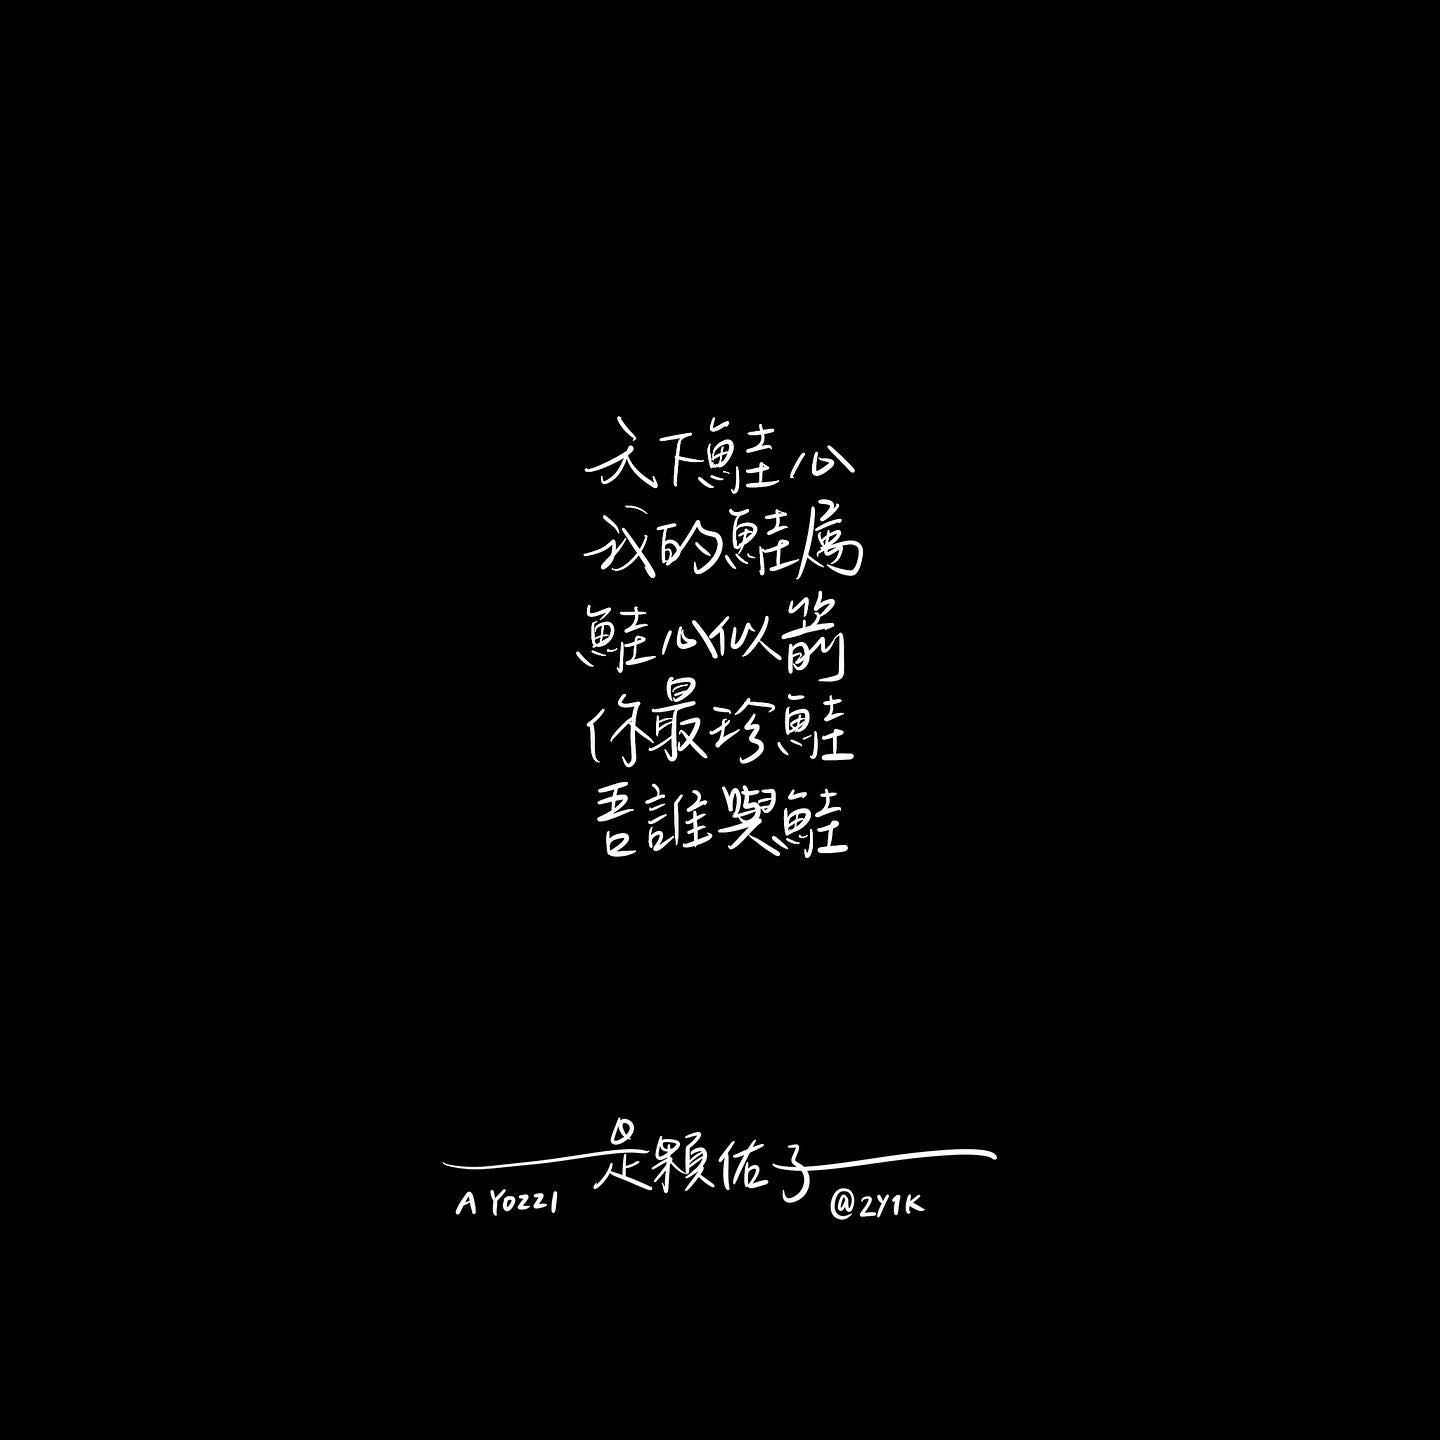 天下鮭心
我的鮭屬
鮭心似箭
你最珍鮭
吾誰與鮭
是顆佑子
A YOZZI
@2Y1K